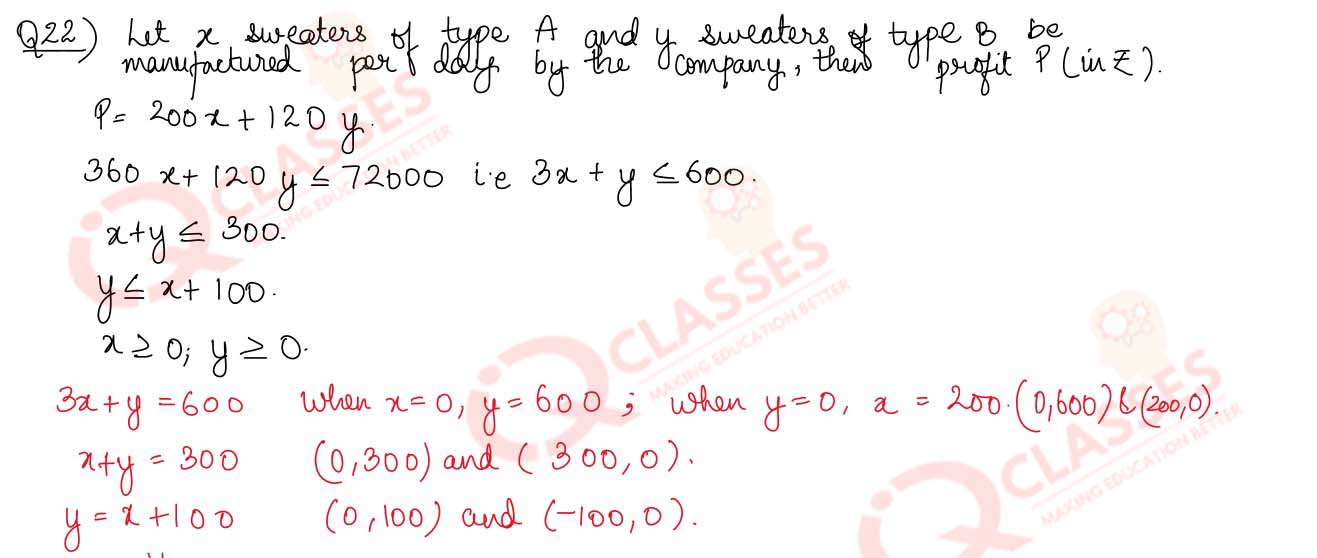 Q22) Let x sweaters of type A and y sweaters of type B be
manufactured per day by the company, then profit P (in ₹).
P = 200x + 120y.
360x + 120y ≤ 72000 i.e 3x + y ≤ 600.
x+y ≤ 300.
y ≤ x + 100.
x ≥ 0; y ≥ 0.
3x + y = 600 when x = 0, y = 600 ; when y = 0, x = 200. (0,600) & (200,0).
x+y = 300 (0,300) and (300,0).
y = x + 100 (0,100) and (-100,0).
IQ CLASSES
MAKING EDUCATION BETTER
IQ CLASSES
MAKING EDUCATION BETTER
IQ CLASSES
MAKING EDUCATION BETTER